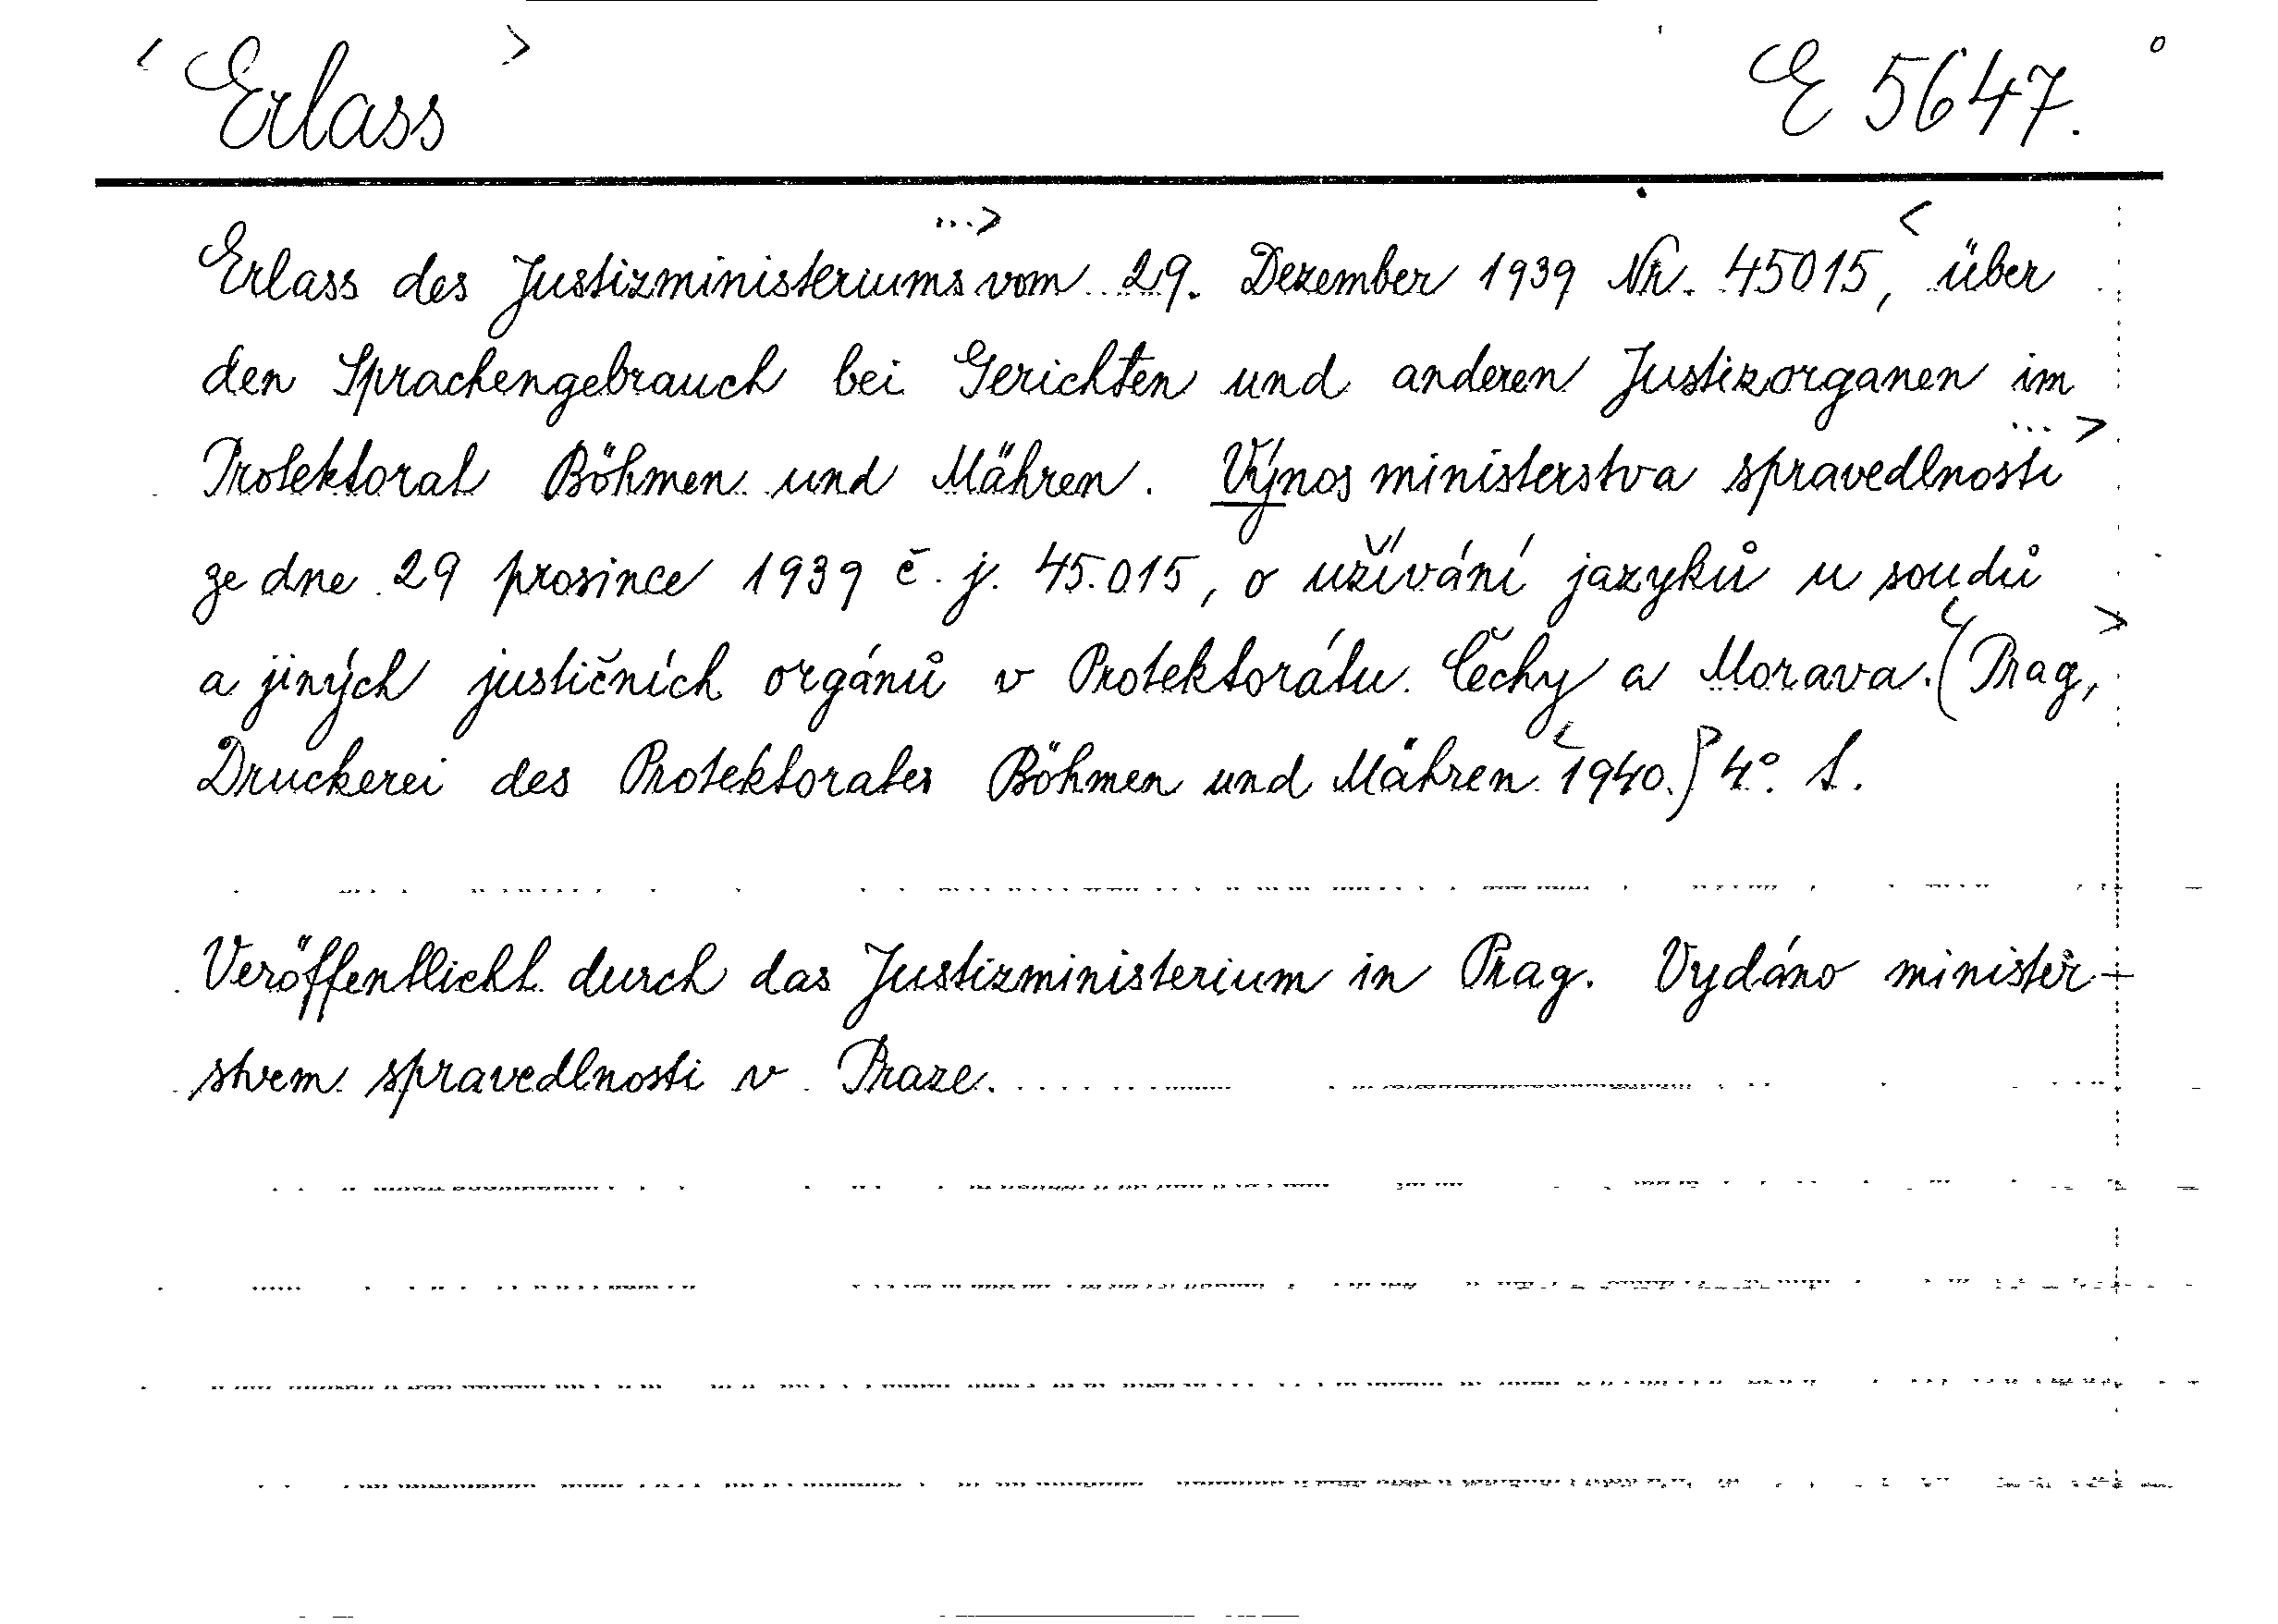 Erlass E 5647.
Erlass des Justizministeriums vom 29. Dezember 1939 Nr. 45015, über
den Sprachengebrauch bei Gerichten und anderen Justizorganen im
Protektorat Böhmen und Mähren. Výnos ministerstva spravedlnosti
ze dne 29 prosince 1939 č. j. 45.015, o užívání jazyků u soudů
a jiných justičních orgánů v Protektorátu Čechy a Morava. (Prag,
Druckerei des Protektorates Böhmen und Mähren 1940.) 4°. S.
Veröffentlicht durch das Justizministerium in Prag. Vydáno minister-
stvem spravedlnosti v Praze.